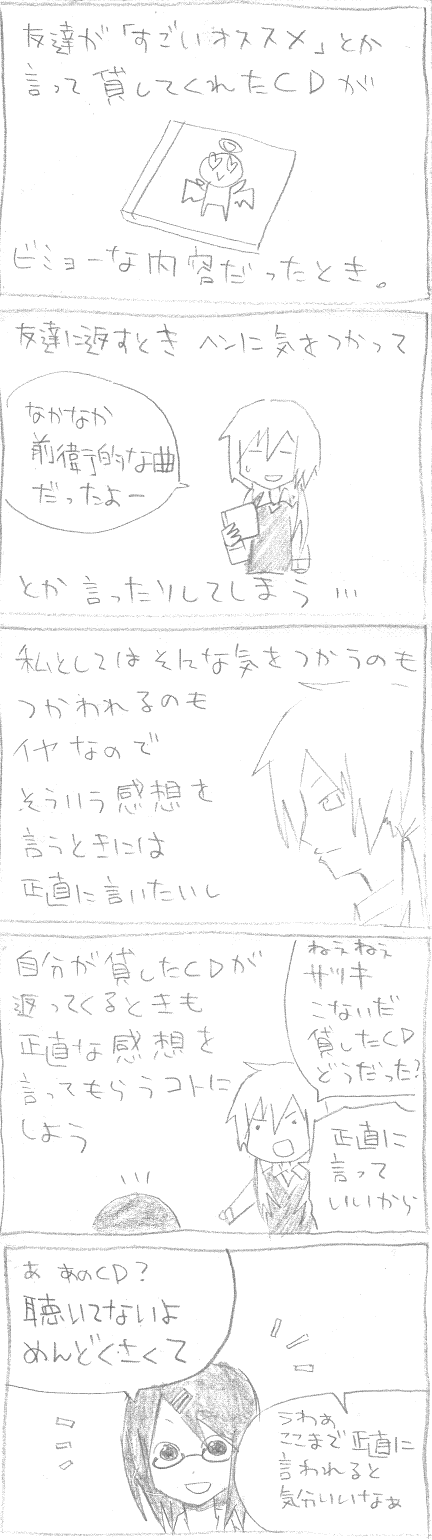 友達が「すごいオススメ」とか
言って貸してくれたCDが
ビミョーな内容だったとき。
友達に返すとき ヘンに気をつかって
なかなか
前衛的な曲
だったよー
とか言ったりしてしまう…
私としてはそんな気をつかうのも
つかわれるのも
イヤなので
そういう感想を
言うときには
正直に言いたいし
自分が貸したCDが
返ってくるときも
正直な感想を
言ってもらうコトに
しよう
ねえねえ
サツキ
こないだ
貸したCD
どうだった?
正直に
言って
いいから
あ あのCD?
聴いてないよ
めんどくさくて
うわぁ
ここまで正直に
言われると
気分いいなぁ